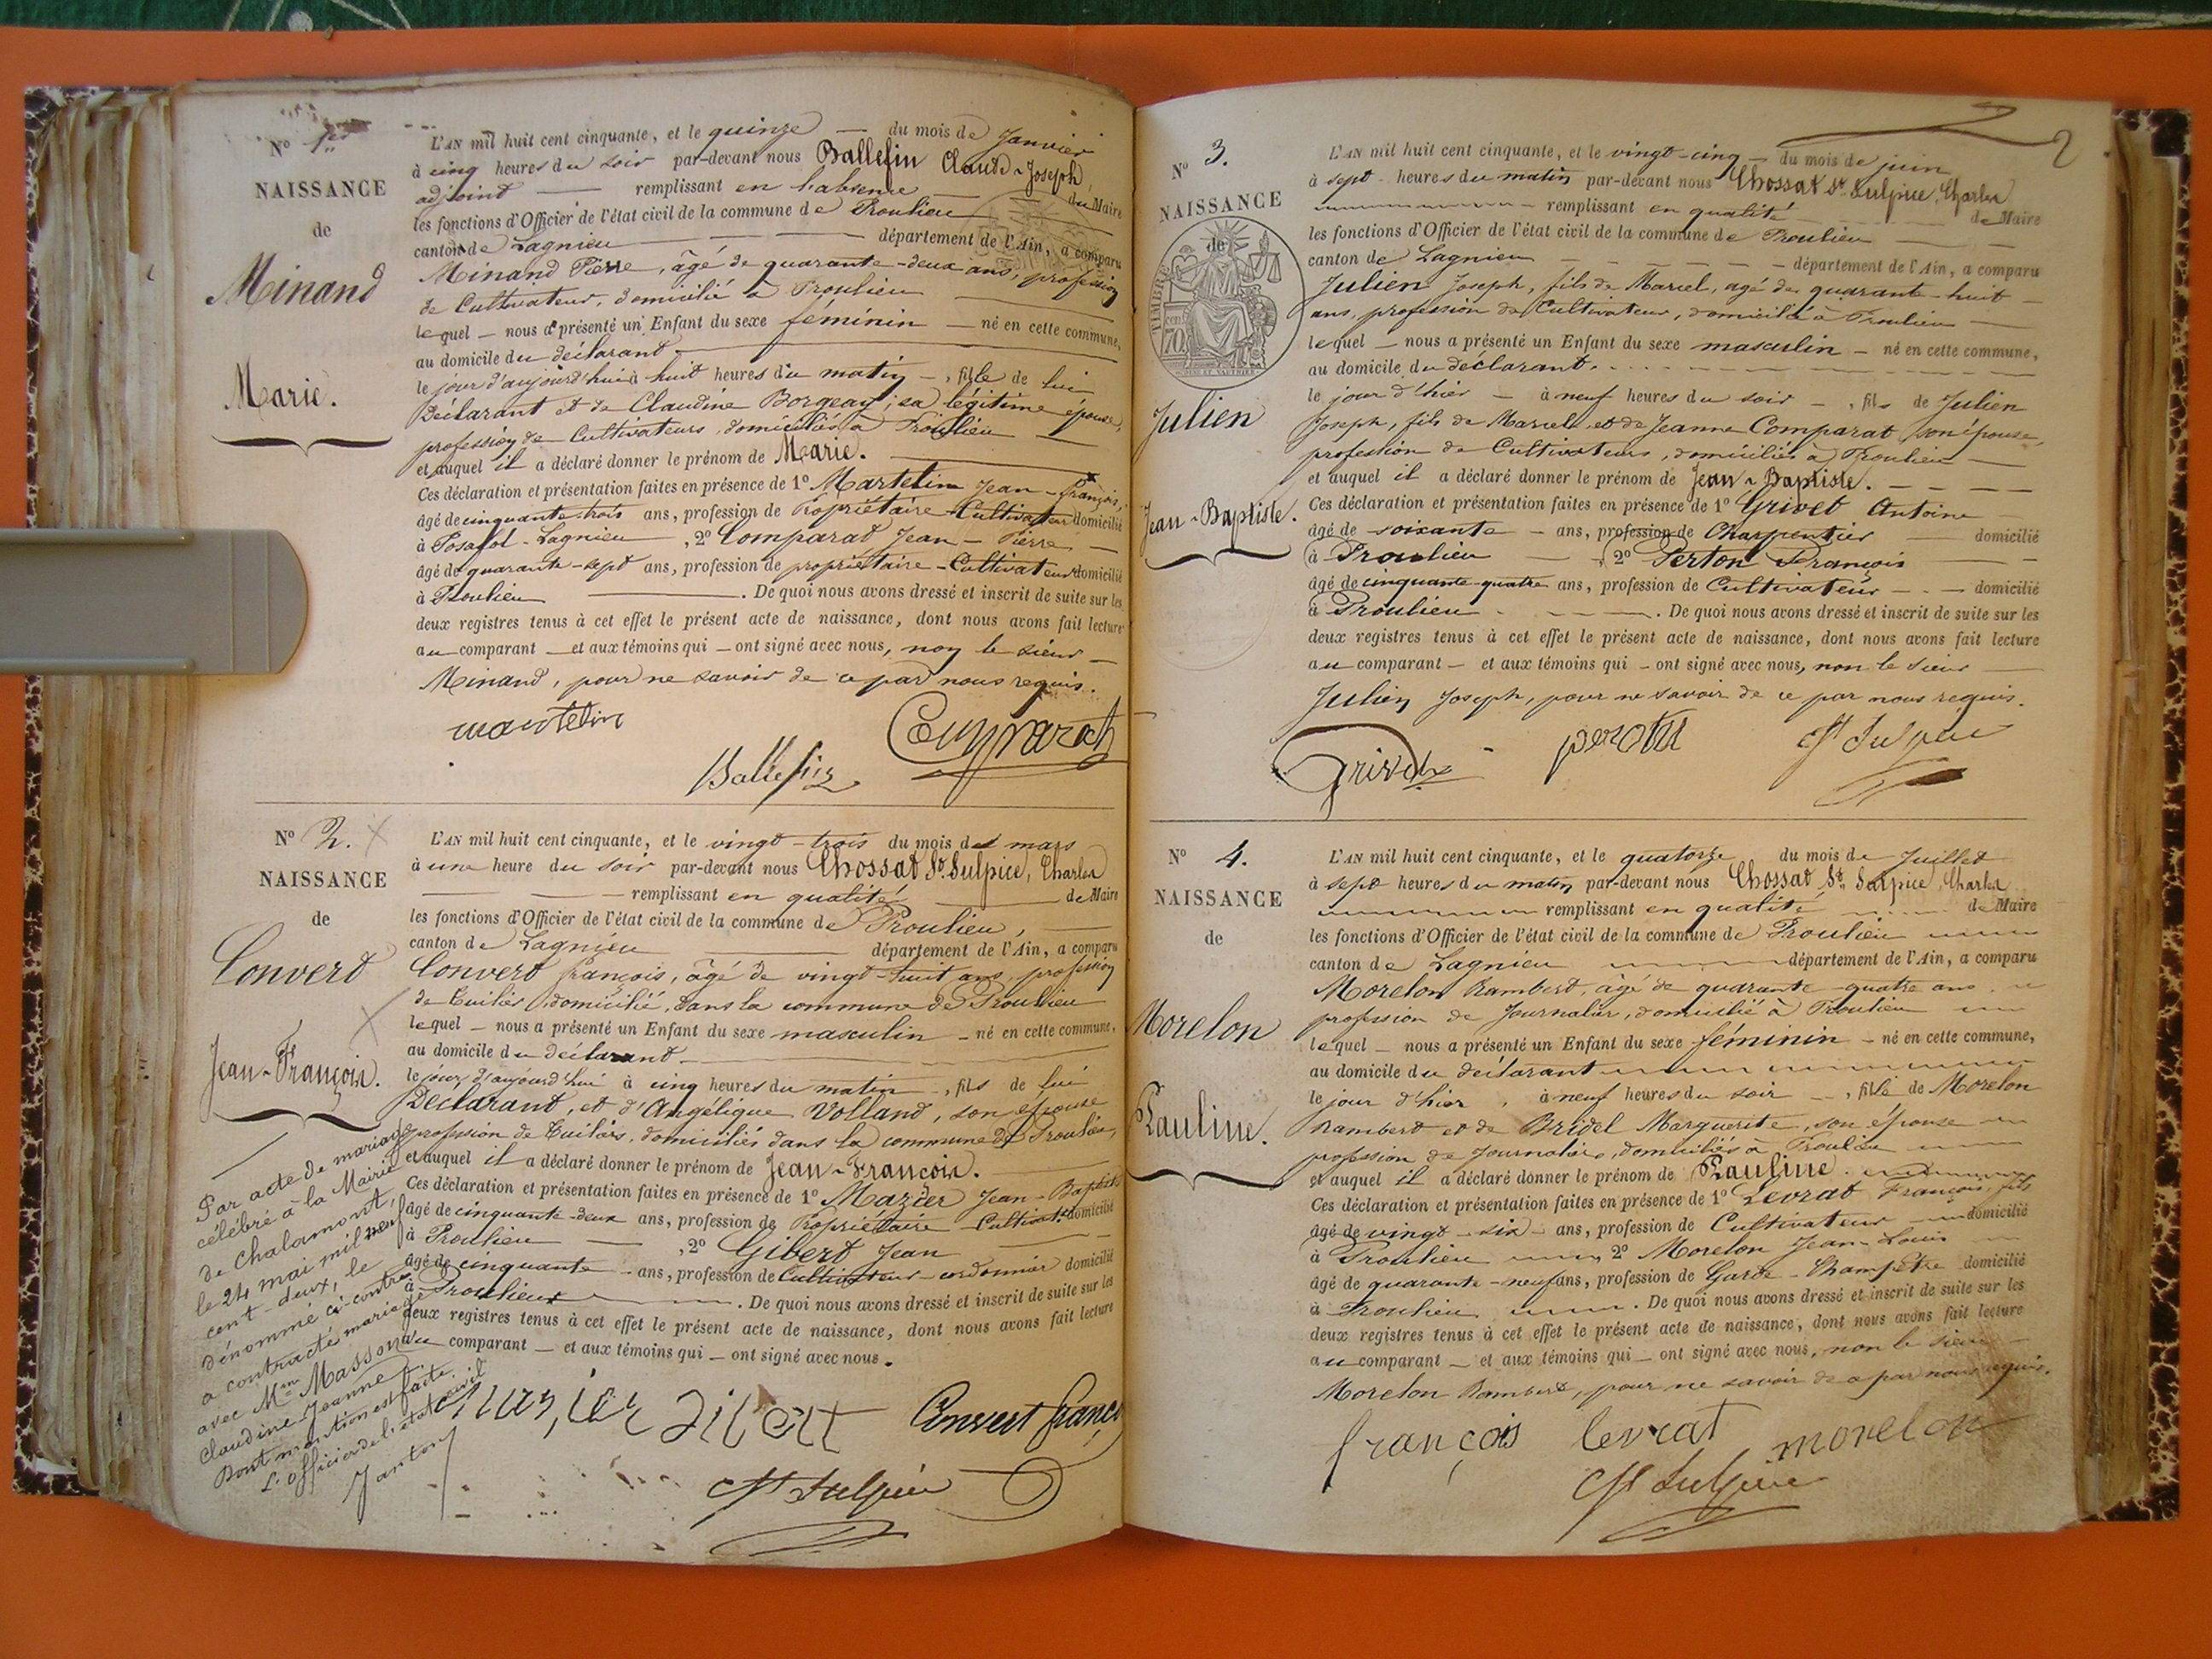 N° 1er
NAISSANCE
de
Minand
Marie.
L'AN mil huit cent cinquante, et le quinze — du mois de Janvier
à cinq heures du soir par-devant nous Ballefin Claude-Joseph,
adjoint — remplissant en l'absence — du Maire
les fonctions d'Officier de l'état civil de la commune de Proulieu
canton de Lagnieu — département de l'Ain, a comparu
Minand Pierre, âgé de quarante-deux ans, profession
de Cultivateur, domicilié à Proulieu —
lequel — nous a présenté un Enfant du sexe féminin — né en cette commune,
au domicile du déclarant —
le jour d'aujourd'hui à huit heures du matin —, fille de lui
Déclarant et de Claudine Borgeay, sa légitime épouse,
profession de Cultivateurs, domiciliés à Proulieu —
et auquel il a déclaré donner le prénom de Marie. —
Ces déclaration et présentation faites en présence de 1° Martelin Jean-François,
âgé de cinquante-trois ans, profession de Propriétaire-Cultivateur domicilié
à Posafol-Lagnieu —, 2° Comparat Jean-Pierre —
âgé de quarante-sept ans, profession de propriétaire-Cultivateur domicilié
à Proulieu —. De quoi nous avons dressé et inscrit de suite sur les
deux registres tenus à cet effet le présent acte de naissance, dont nous avons fait lecture
au comparant — et aux témoins qui — ont signé avec nous, non le sieur —
Minand, pour ne savoir de ce par nous requis.
martelin
Comparat
Ballefin
N° 2.
NAISSANCE
de
Convert
Jean-François.
L'AN mil huit cent cinquante, et le vingt-trois du mois de mars
à une heure du soir par-devant nous Chossat St. Sulpice, Charles
— remplissant en qualité — de Maire
les fonctions d'Officier de l'état civil de la commune de Proulieu, —
canton de Lagnieu — département de l'Ain, a comparu
Convert françois, âgé de vingt-huit ans, profession
de Tuilier, domicilié dans la commune de Proulieu
lequel — nous a présenté un Enfant du sexe masculin — né en cette commune,
au domicile du déclarant —
le jour d'aujourd'hui à cinq heures du matin —, fils de lui
Déclarant, et d'Angélique Volland, son épouse
profession de Tuiliers, domiciliés dans la commune de Proulieu,
et auquel il a déclaré donner le prénom de Jean-François.
Ces déclaration et présentation faites en présence de 1° Mazier Jean-Baptiste
âgé de cinquante-deux ans, profession de Propriétaire Cultivatr domicilié
à Proulieu —, 2° Gibert Jean —
âgé de cinquante — ans, profession de Cultivateur-cordonnier domicilié
à Proulieu —. De quoi nous avons dressé et inscrit de suite sur les
deux registres tenus à cet effet le présent acte de naissance, dont nous avons fait lecture
au comparant — et aux témoins qui — ont signé avec nous.
Par acte de mariage
célébré à la Mairie
de Chalamont,
le 24 mai mil neuf
cent-deux, le
dénommé ci-contre
a contracté mariage
avec Mme Masson
Claudine Jeanne
Dont mention est faite.
L'officier de l'état civil
Jantor
Mazier Gibert Convert franç
Ch St Sulpice
N° 3.
NAISSANCE
de
TIMBRE
70
Julien
Jean-Baptiste.
2
L'AN mil huit cent cinquante, et le vingt-cinq — du mois de juin
à sept heures du matin par-devant nous Chossat St. Sulpice, Charles
— remplissant en qualité — de Maire
les fonctions d'Officier de l'état civil de la commune de Proulieu —
canton de Lagnieu — département de l'Ain, a comparu
Julien Joseph, fils de Marcel, agé de quarante-huit —
ans, profession de Cultivateur, domicilié à Proulieu —
lequel — nous a présenté un Enfant du sexe masculin — né en cette commune,
au domicile du déclarant. —
le jour d'hier — à neuf heures du soir —, fils de Julien
Joseph, fils de Marcel et de Jeanne Comparat son épouse,
profession de Cultivateurs, domiciliés à Proulieu —
et auquel il a déclaré donner le prénom de Jean-Baptiste. —
Ces déclaration et présentation faites en présence de 1° Grivet Antoine
âgé de soixante — ans, profession de Charpentier — domicilié
à Proulieu — 2° Perton François —
âgé de cinquante-quatre ans, profession de Cultivateur — domicilié
à Proulieu —. De quoi nous avons dressé et inscrit de suite sur les
deux registres tenus à cet effet le présent acte de naissance, dont nous avons fait lecture
au comparant — et aux témoins qui — ont signé avec nous, non le Sieur —
Julien Joseph, pour ne savoir de ce par nous requis.
Grivet
Ch St Sulpice
N° 4.
NAISSANCE
de
Morelon
Pauline.
L'AN mil huit cent cinquante, et le quatorze du mois de Juillet
à sept heures du matin par-devant nous Chossat St. Sulpice, Charles
— remplissant en qualité — de Maire
les fonctions d'Officier de l'état civil de la commune de Proulieu —
canton de Lagnieu — département de l'Ain, a comparu
Morelon Rambert, âgé de quarante-quatre ans —
profession de Journalier, domicilié à Proulieu —
lequel — nous a présenté un Enfant du sexe féminin — né en cette commune,
au domicile du déclarant —
le jour d'hier, à neuf heures du soir —, fille de Morelon
Rambert et de Bridel Marguerite, son épouse —
profession de Journaliers, domiciliés à Proulieu —
et auquel il a déclaré donner le prénom de Pauline. —
Ces déclaration et présentation faites en présence de 1° Levrat François, fils
âgé de vingt-six — ans, profession de Cultivateur — domicilié
à Proulieu — 2° Morelon Jean-Louis —
âgé de quarante-neuf ans, profession de Garde-Champêtre domicilié
à Proulieu —. De quoi nous avons dressé et inscrit de suite sur les
deux registres tenus à cet effet le présent acte de naissance, dont nous avons fait lecture
au comparant — et aux témoins qui — ont signé avec nous, non le Sieur —
Morelon Rambert, pour ne savoir de ce par nous requis.
françois levrat morelon
Ch St Sulpice